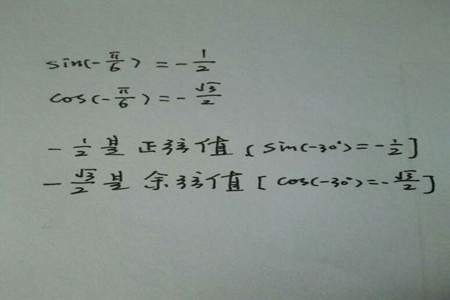 sin(-π/6) = -1/2
cos(-π/6) = -√3/2
-1/2是 正弦值 [sin(-30°)=-1/2]
-√3/2是 余弦值 [cos(-30°)=-√3/2]